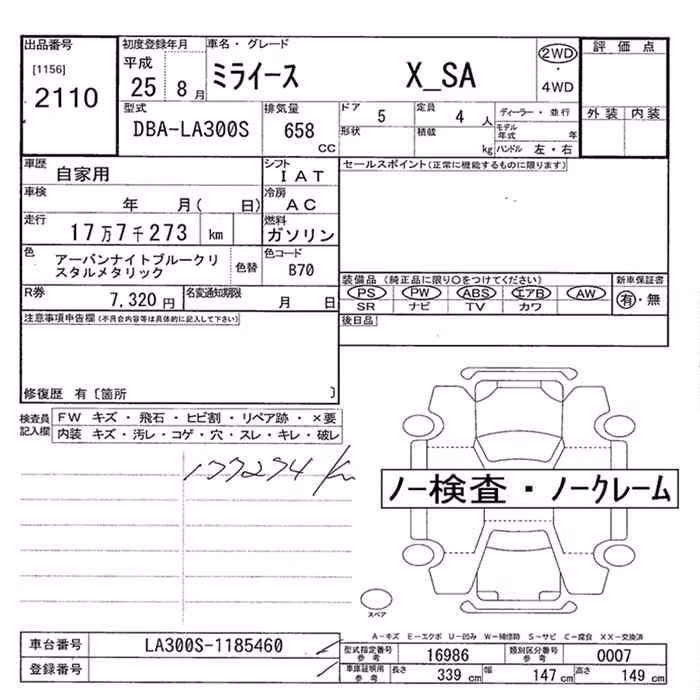 出品番号
[1156]
2110
初度登録年月
平成
25 8 月
車名・グレード
ミライース X_SA
2WD
・
4WD
評価点
外装 内装
型式
DBA-LA300S
排気量
658
CC
ドア
5
定員
4 人
形状
積載
kg
ディーラー・並行
モデル
年式 年
ハンドル 左・右
車歴
自家用
シフト
IAT
車検
年 月( 日)
冷房
AC
走行
17万7千273 km
燃料
ガソリン
色
アーバンナイトブルークリ
スタルメタリック
色替
色コード
B70
R券
7,320 円
名変通知期限
月 日
セールスポイント(正常に機能するものに限ります)
装備品 (純正品に限り○をつけてください)
PS PW ABS エアB AW
SR ナビ TV カワ
新車保証書
有・無
後日品
注意事項申告欄 (不具合内容等は具体的に記入して下さい)
修復歴 有〔箇所 〕
検査員
記入欄
FW キズ・飛石・ヒビ割・リペア跡・×要
内装 キズ・汚レ・コゲ・穴・スレ・キレ・破レ
177274 km
ノー検査・ノークレーム
スペア
A-キズ E-エクボ U-凹み W-補修跡 S-サビ C-腐食 XX-交換済
車台番号
LA300S-1185460
登録番号
型式指定番号
参考
16986
類別区分番号
参考
0007
車庫証明用
参考
長さ 339 cm 幅 147 cm 高さ 149 cm